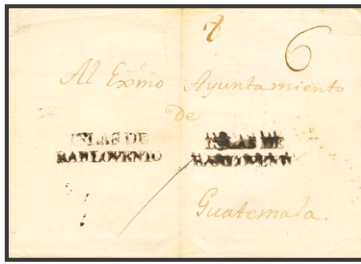 6
Al Exmo Ayuntamiento
de
ISLAS DE
BARLOVENTO
ISLAS DE
BARLOVENTO
Guatemala.